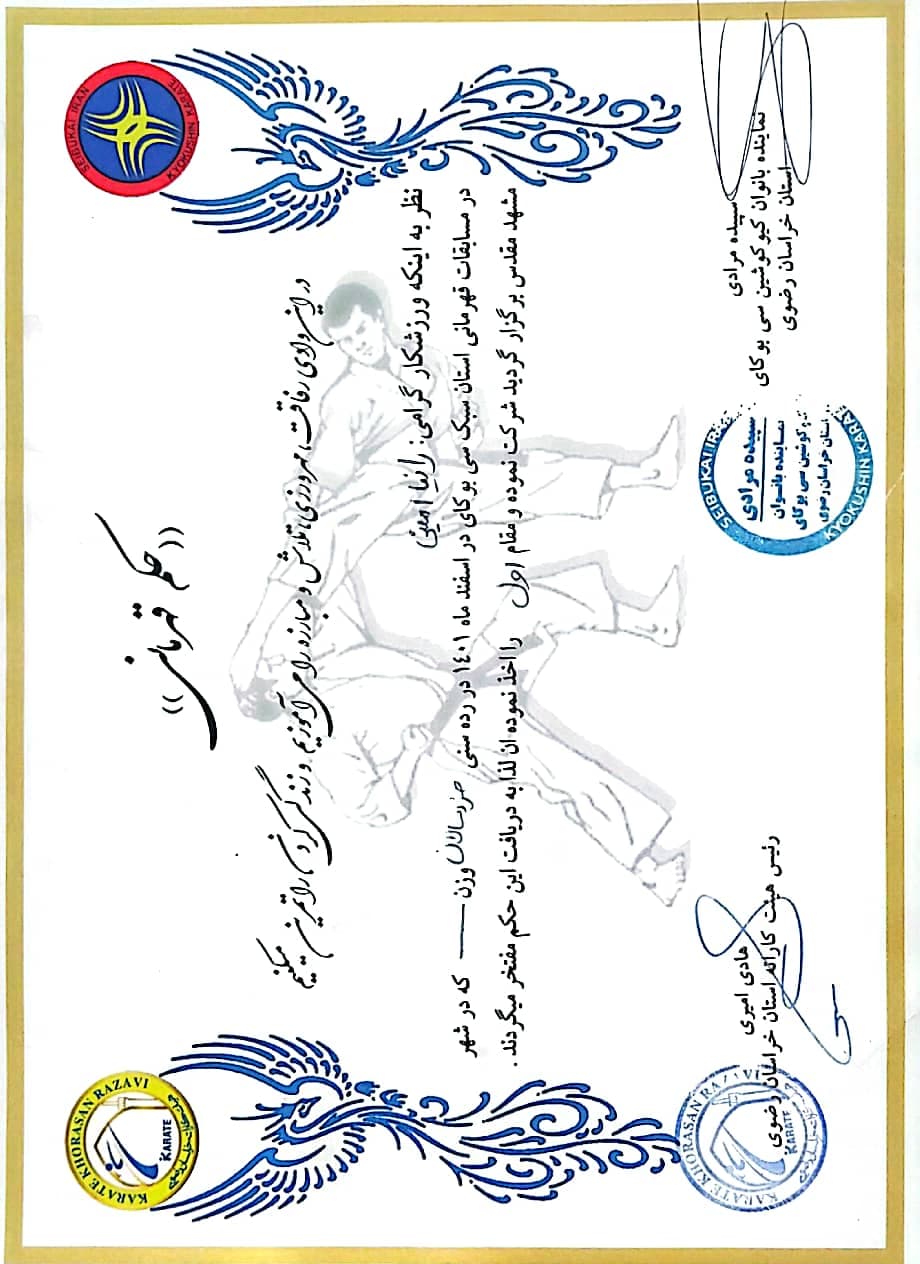 SEIBUKAI IRAN
KYOKUSHIN KARATE
KARATE KHORASAN RAZAVI
KARATE
(( حکم قهرمانی ))
در این وادی رفاقت، مهرورزی، تلاش و مبارزه را می آموزیم و زندگی کردن را تمرین میکنیم
نظر به اینکه ورزشکار گرامی: رانیا امینی
در مسابقات قهرمانی استان سبک سی بوکای در اسفند ماه ۱٤۰۱ در رده سنی خردسالان وزن — که در شهر
مشهد مقدس برگزار گردید شرکت نموده و مقام اول را اخذ نموده ان لذا به دریافت این حکم مفتخر میگردند.
سپیده مرادی
نماینده بانوان کیوکوشین سی بوکای
استان خراسان رضوی
SEIBUKAI IRAN
سپیده مرادی
نماینده بانوان
کیوکوشین سی بوکای
استان خراسان رضوی
KYOKUSHIN KARATE
هادی امیری
رئیس هیئت کاراته استان خراسان رضوی
KARATE KHORASAN RAZAVI
KARATE